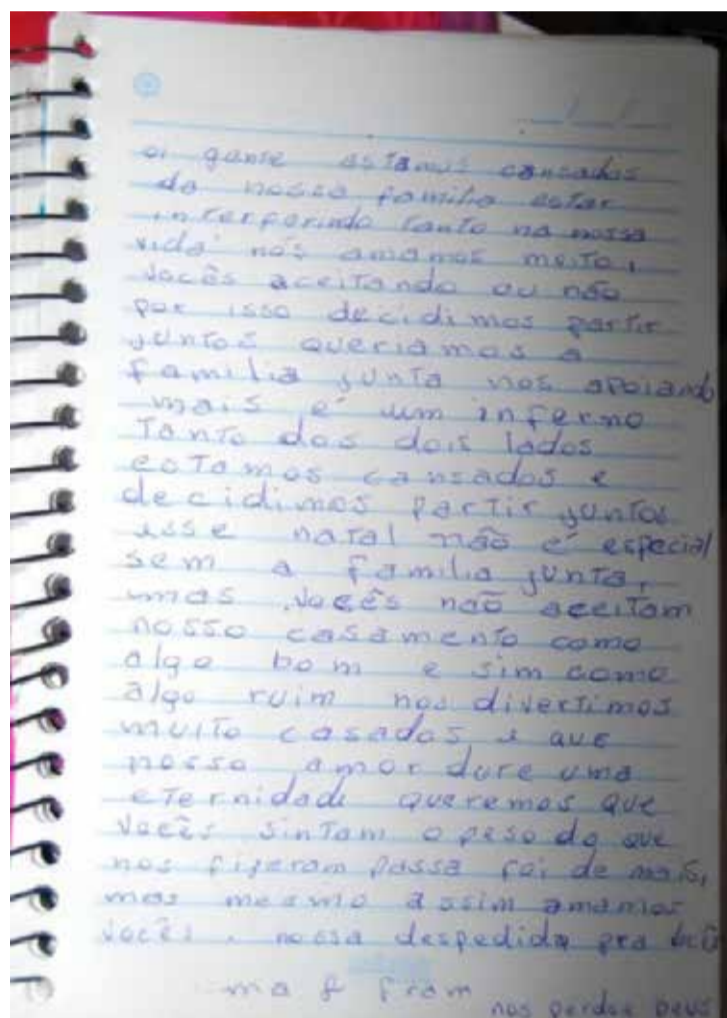 oi gente estamos cansados
da nossa familia estar
interferindo tanto na nossa
vida nós amamos meito,
vocês aceitando ou não
por isso decidimos partir
juntos queriamos a
familia junta nos apoiando
mais é um inferno
Tanto dos dois lados
estamos cansados e
decidimos partir juntos
esse natal não é especial
sem a familia junta,
mas vocês não aceitam
nosso casamento como
algo bom e sim como
algo ruim nos divertimos
muito casados e que
nosso amor dure uma
eternidade queremos que
vocês sintam o peso do que
nos fizeram passa foi de mais,
mas mesmo assim amamos
vocês. nossa despedida pra
nos perdoe Deus